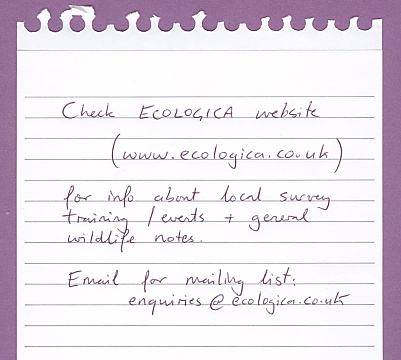 Check ECOLOGICA website
(www.ecologica.co.uk)
for info about local survey
training / events + general
wildlife notes.
Email for mailing list:
enquiries@ecologica.co.uk